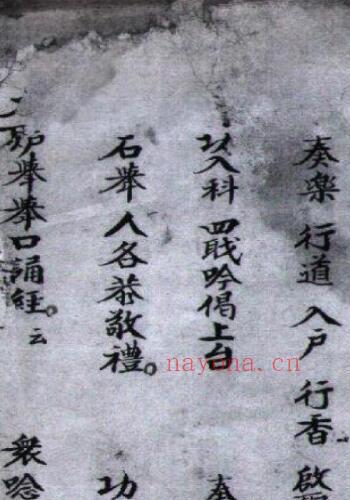 奏樂 行道 入户 行香 啟
以入科 四戝吟偈上台 奏
石舉 人各恭敬禮。 功
炉舉舉口誦経。云 衆唸
nayona.cn